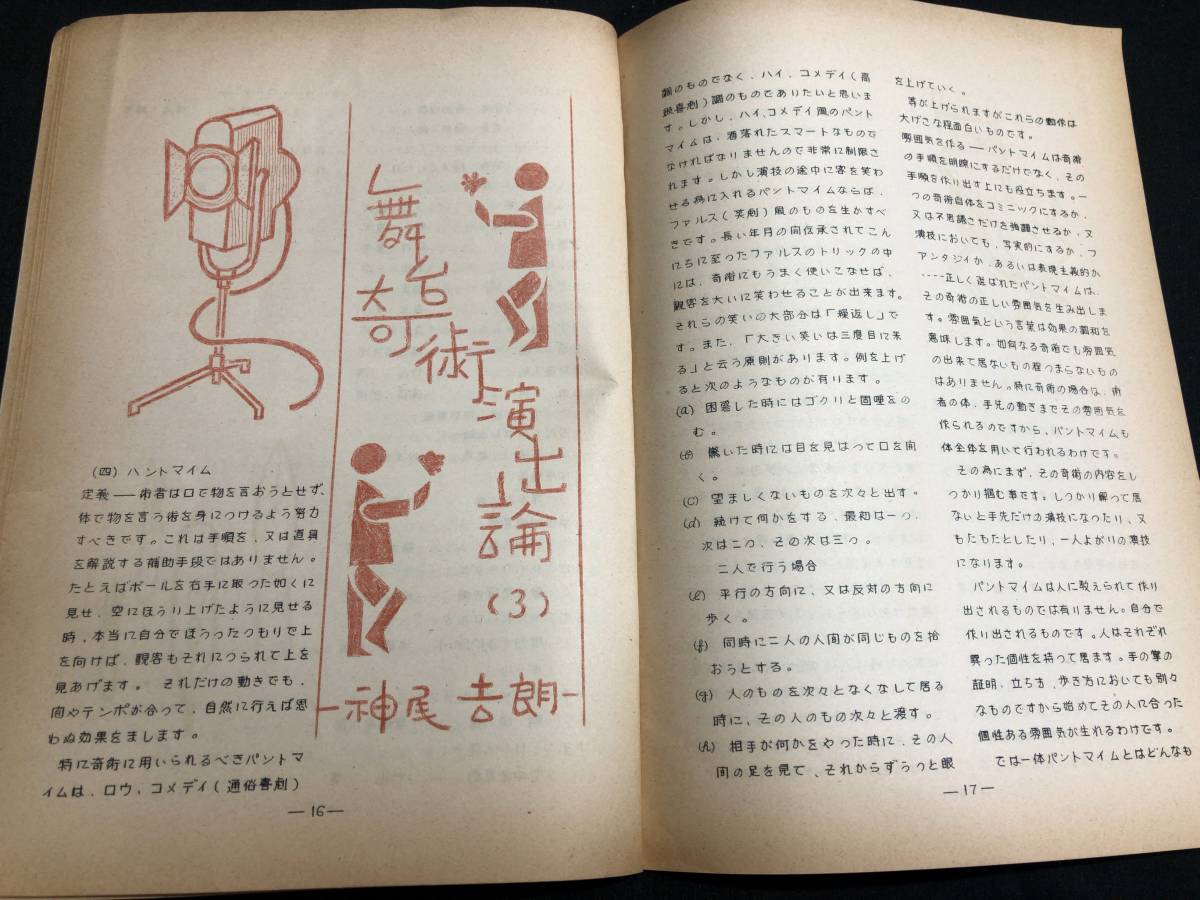 舞台
奇術
演出論
(3)
神尾 吉朗
(四) パントマイム
定義——術者は口で物を言おうとせず、
体で物を言う術を身につけるよう努力
すべきです。これは手順を、又は道具
を解説する補助手段ではありません。
たとえばボールを右手に取った如くに
見せ、空にほうり上げたように見せる
時、本当に自分でほうったつもりで上
を向けば、観客もそれにつられて上を
見あげます。 それだけの動きでも、
間やテンポが合って、自然に行えば思
わぬ効果をまします。
特に奇術に用いられるべきパントマ
イムは、ロウ、コメデイ(通俗喜劇)
—16—
調のものでなく、ハイ、コメデイ(高
級喜劇)調のものでありたいと思いま
す。しかし、ハイ、コメデイ風のパント
マイムは、洒落れたスマートなもので
なければなりませんので非常に制限さ
れます。しかし演技の途中に客を笑わ
せる為に入れるパントマイムならば、
ファルス(笑劇)風のものを生かすべ
きです。長い年月の間伝承されてこん
にちに至ったファルスのトリックの中
には、奇術にもうまく使いこなせば、
観客を大いに笑わせることが出来ます。
それらの笑いの大部分は「繰返し」で
す。また、「大きい笑いは三度目に来
る」と云う原則があります。例を上げ
ると次のようなものが有ります。
(a) 困惑した時にはゴクリと固唾をの
む。
(b) 驚いた時には目を見はって口を開
く。
(c) 望ましくないものを次々と出す。
(d) 続けて何かをする、最初は一つ、
次は二つ、その次は三つ。
二人で行う場合
(e) 平行の方向に、又は反対の方向に
歩く。
(f) 同時に二人の人間が同じものを拾
おうとする。
(g) 人のものを次々となくなして居る
時に、その人のもの次々と渡す。
(h) 相手が何かをやった時に、その人
間の足を見て、それからずうっと眼
を上げていく。
等が上げられますがこれらの動作は
大げさな程面白いものです。
雰囲気を作る——パントマイムは奇術
の手順を明瞭にするだけでなく、その
手順を作り出す上にも役立ちます。一
つの奇術自体をコミニックにするか、
又は不思議さだけを強調させるか、又
演技においても、写実的にするか、フ
アンタジイか、あるいは表現主義的か
----正しく選ばれたパントマイムは、
その奇術の正しい雰囲気を生み出しま
す。雰囲気という言葉は効果の調和を
意味します。如何なる奇術でも雰囲気
の出来て居ないもの程つまらないもの
はありません。特に奇術の場合は、術
者の体、手先の動きまでその雰囲気を
作られるのですから、パントマイムも
体全体を用いて行われるわけです。
その為にまず、その奇術の内容をし
つかり掴む事です。しつかり解って居
ないと手先だけの演技になったり、又
もたもたとしたり、一人よがりの演技
になります。
パントマイムは人に教えられて作り
出されるものでは有りません。自分で
作り出されるものです。人はそれぞれ
異った個性を持って居ます。手の掌の
証明、立ち方、歩き方においても別々
なものですから始めてその人に合った
個性ある雰囲気が生れるわけです。
では一体パントマイムとはどんなも
—17—